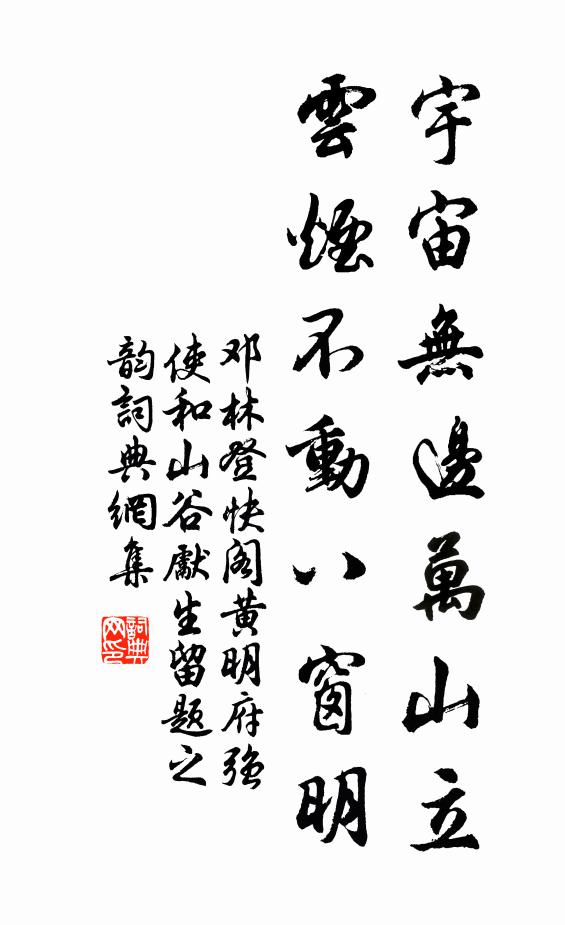 宇宙無邊萬山立
雲煙不動八窗明
邓林登快阁黄明府强
使和山谷獻生留题之
韵詞典網集
詞典
网印